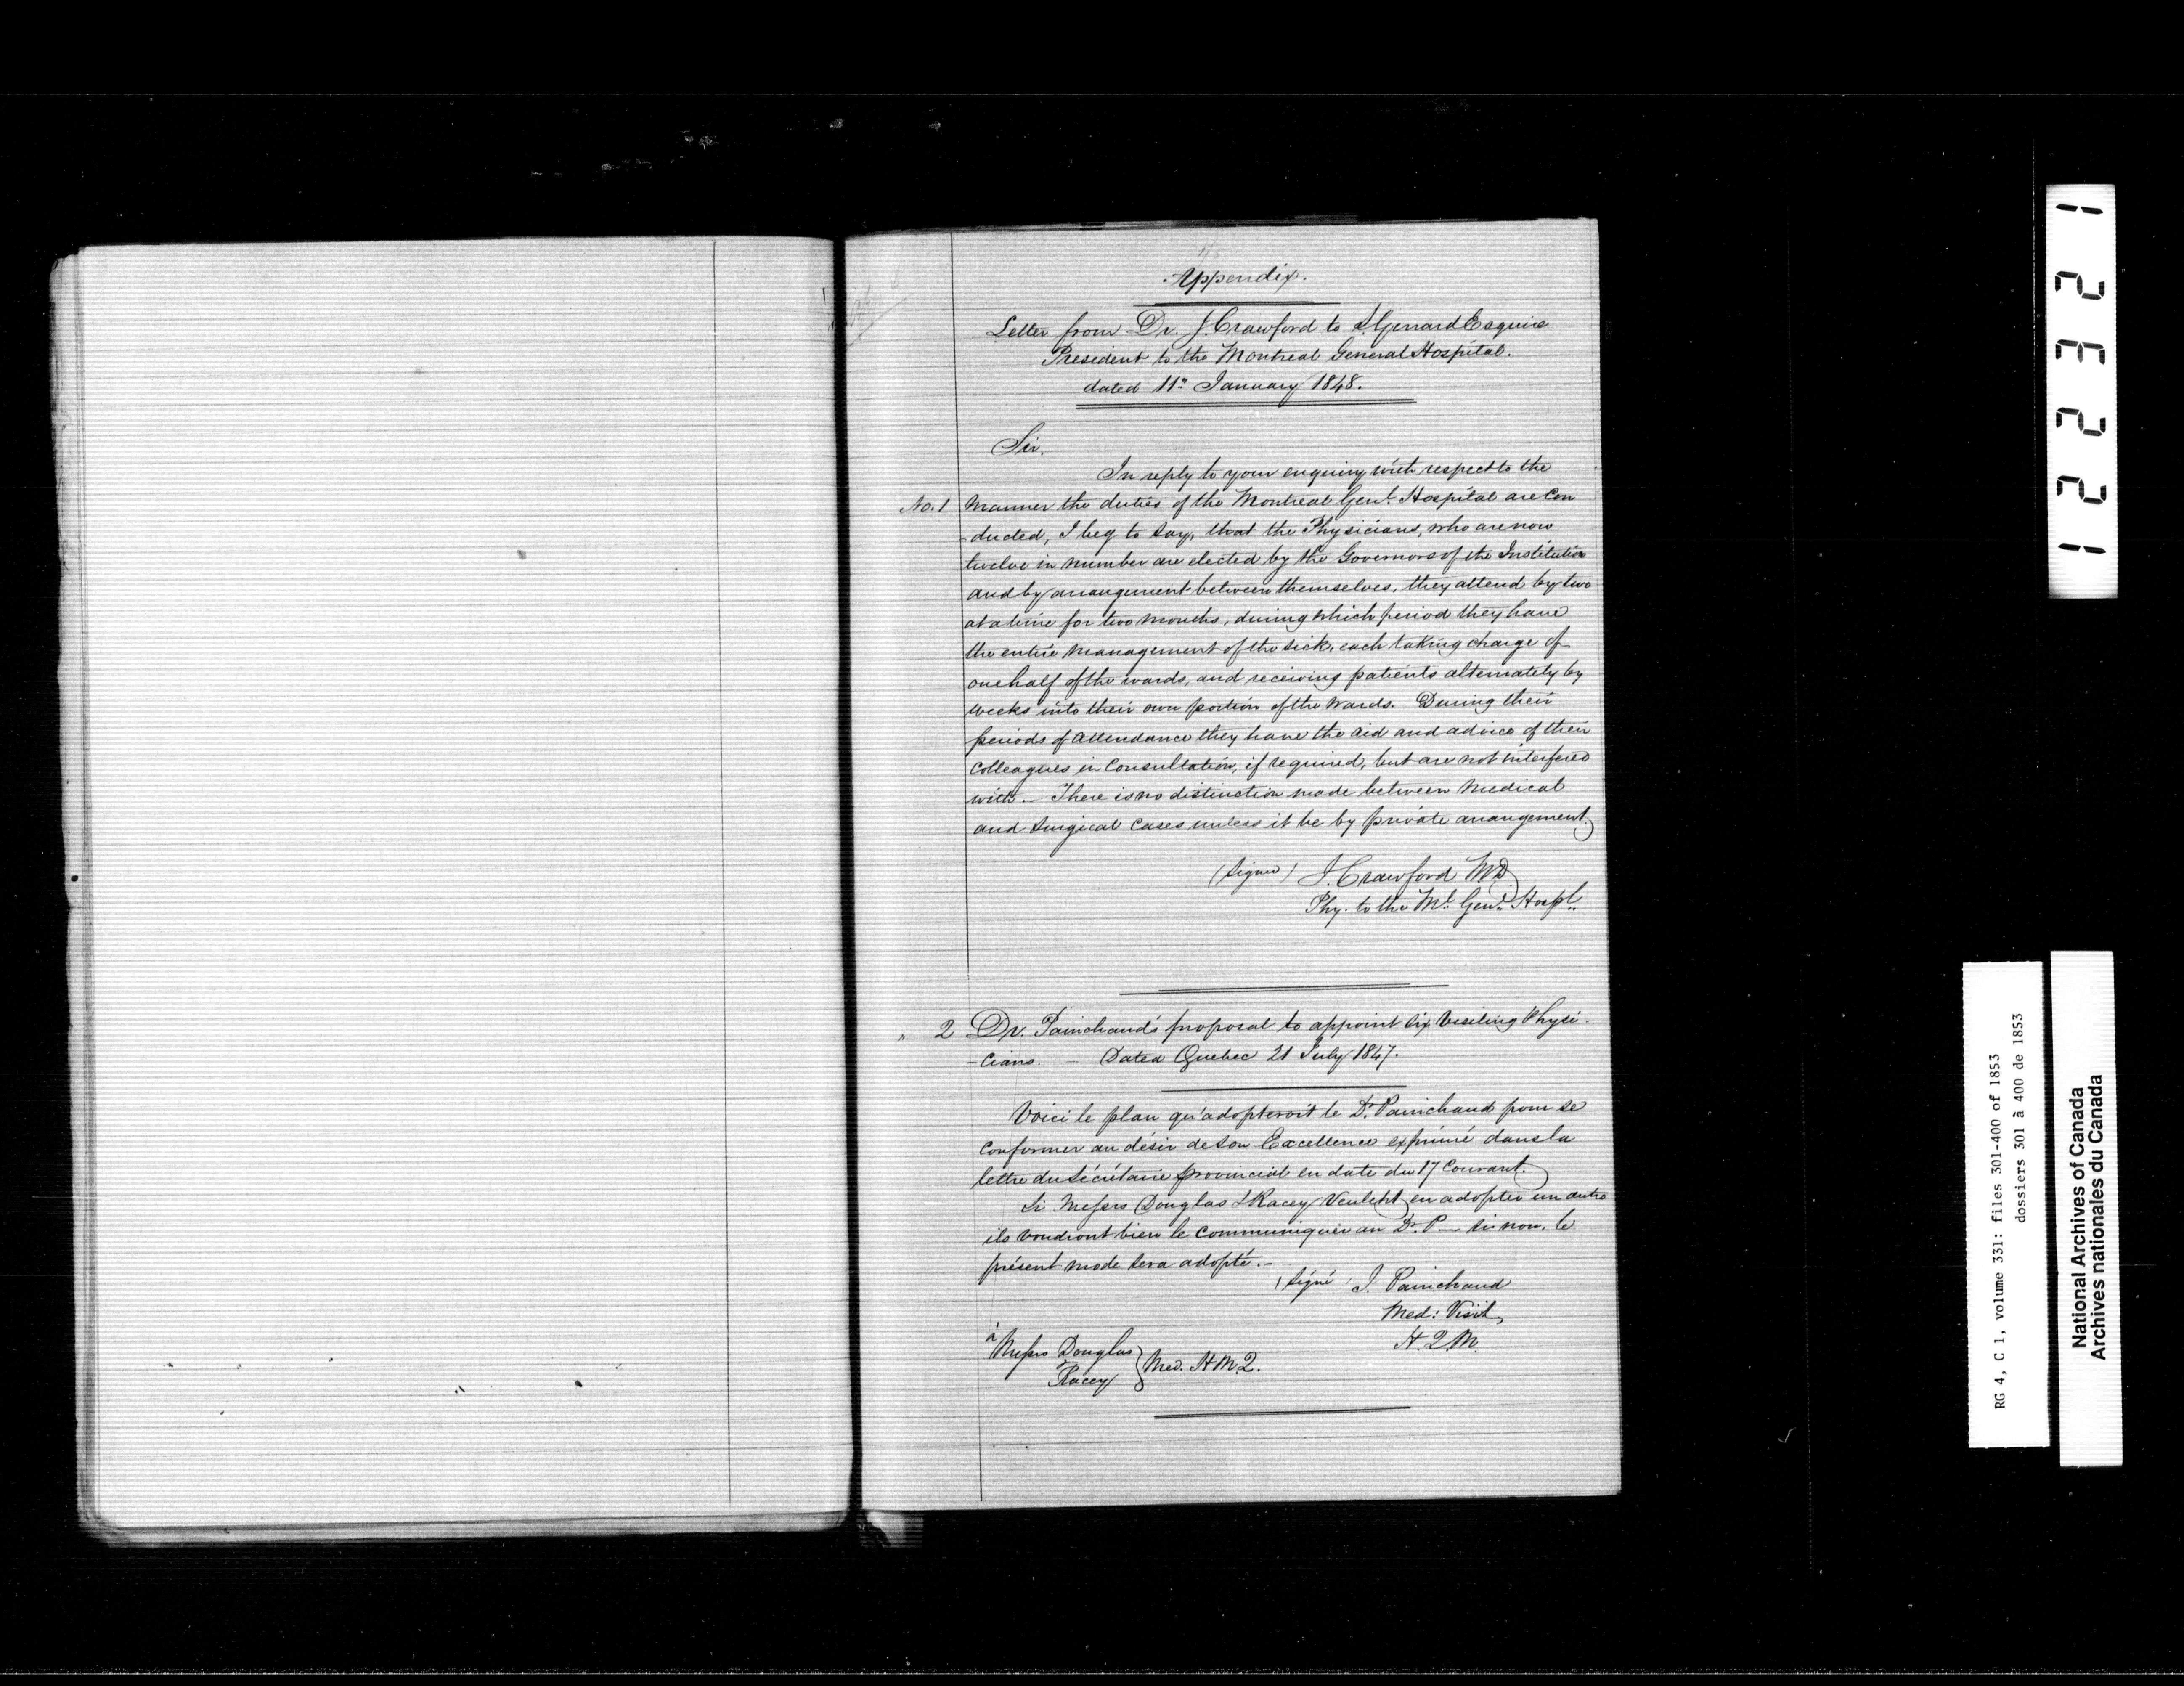 Appendix.
Letter from Dr. J. Crawford to S. Gerrard Esquire
President to the Montreal General Hospital.
dated 11th January 1848.
Sir,
In reply to your enquiry with respect to the
No. 1 Manner the duties of the Montreal Genl. Hospital are Con
-ducted, I beg to say, that the Physicians, who are now
twelve in number are elected by the Governors of the Institution
and by arrangement between themselves, they attend by two
at a time for two months, during which period they have
the entire management of the sick, each taking charge of
one half of the wards, and receiving patients alternately by
weeks into their own portion of the wards. During their
periods of attendance they have the aid and advice of their
Colleagues in Consultation, if required, but are not interfered
with. — There is no distinction made between Medical
and Surgical Cases unless it be by private arrangement.
(Signed) J. Crawford MD
Phy. to the Ml. Genl. Hospl.
" 2 Dr. Painchaud's proposal to appoint Six Visiting Physi-
-cians. — Dated Quebec 21 July 1847.
Voici le plan qu'adopteroit le Dr. Painchaud pour se
Conformer au désir de Son Excellence exprimé dans la
lettre du Sécrétaire provincial en date du 17 Courant.
Si Messrs Douglas & Racey veulent en adopter un autre
ils voudront bien le Communiquer au Dr. P— Sinon, le
présent mode sera adopté. —
(Signé) J. Painchaud
Med: Visit,
H. Q. M.
à
Messrs Douglas
& Racey } Med. H M. Q.
1 2 2 3 2 1
RG 4, C 1, volume 331: files 301-400 of 1853
dossiers 301 à 400 de 1853
National Archives of Canada
Archives nationales du Canada